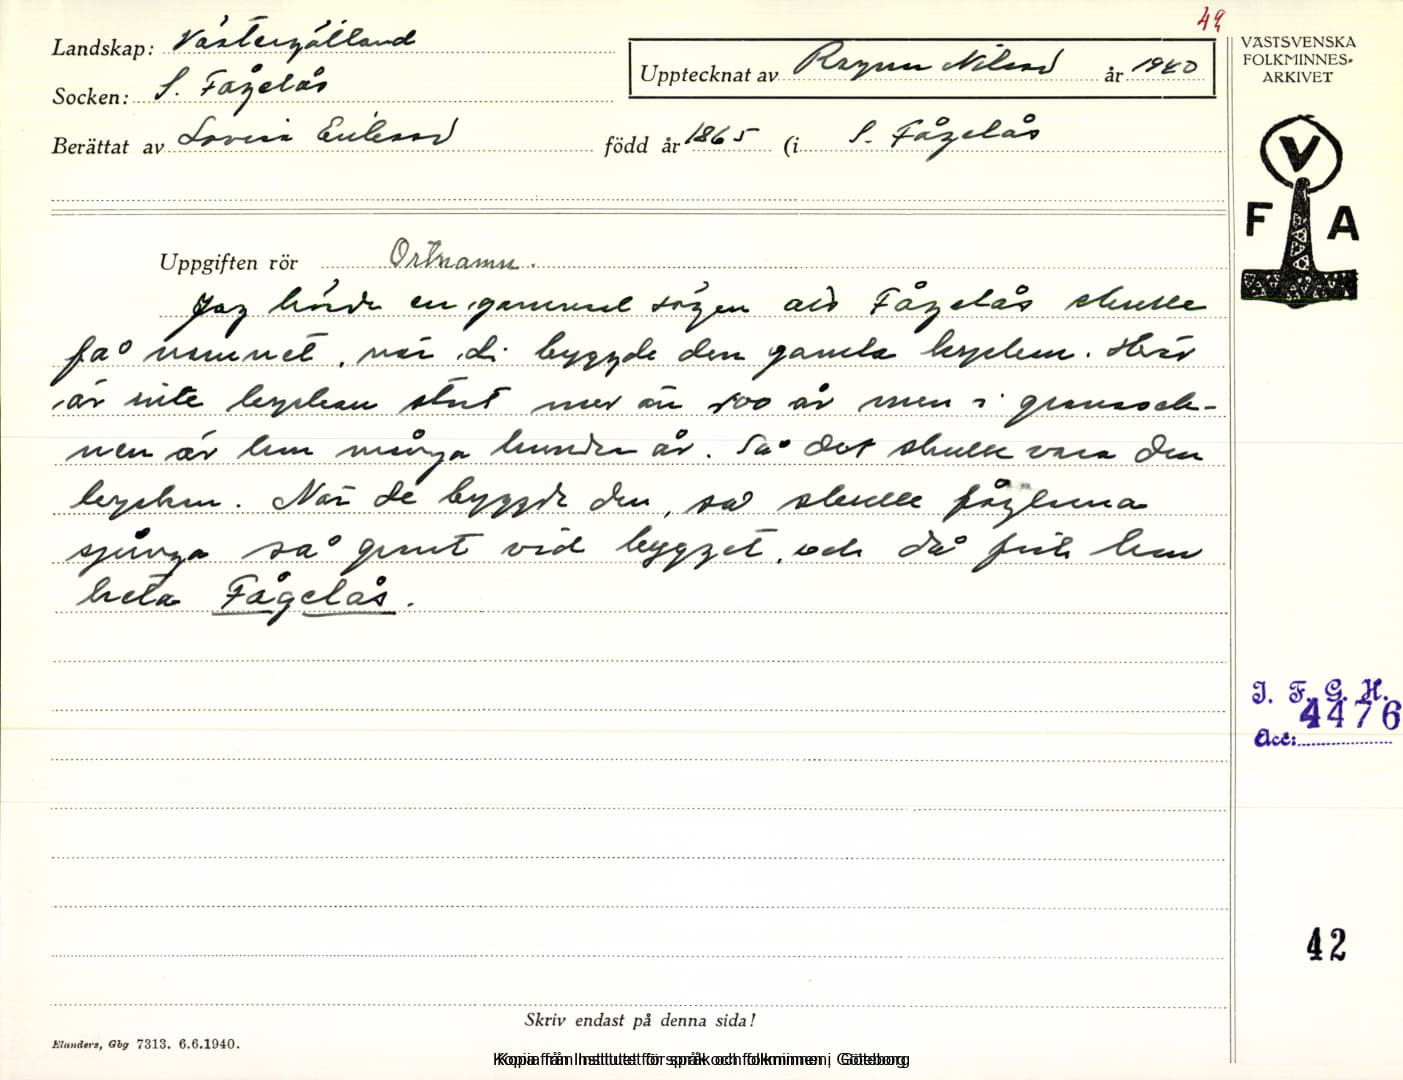 49
Landskap: Västergötland
Socken: S. Fågelås
Upptecknat av Ragnar Nilsson år 1940
Berättat av Lovisa Eriksson född år 1865 (i S. Fågelås
VÄSTSVENSKA
FOLKMINNES-
ARKIVET
V
F A
Uppgiften rör Ortnamn.
Jag hörde en gammal sägen att Fågelås skulle
få namnet, när di byggde den gamla kyrkan. Här
är inte kyrkan stått mer än 100 år men i grannsock-
nen är hon många hundra år. Så det skulle vara den
kyrkan. När de byggde den, så skulle fåglarna
sjunga så grant vid bygget, och då fick hon
heta Fågelås.
I. F. G. H.
4476
Acc:
42
Skriv endast på denna sida!
Elanders, Gbg 7313. 6.6.1940.
Kopia från Institutet för språk och folkminnen, Göteborg